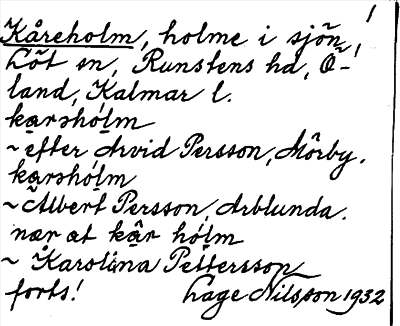 1
Kåreholm, holme i sjön,
Löt sn, Runstens hd, Ö-
land, Kalmar l.
karshólm
~ efter Arvid Persson, Mörby.
karshólm
~ Albert Persson, Arblunda.
nær at kår hólm
~ Karolina Pettersson
forts! Hage Nilsson 1932